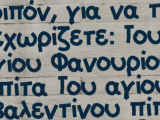 ριπόν, για να τ
εχωρίζετε: Του
γίου Φανουρίο
πίτα Του αγιου
βαλεντίνου πίτ